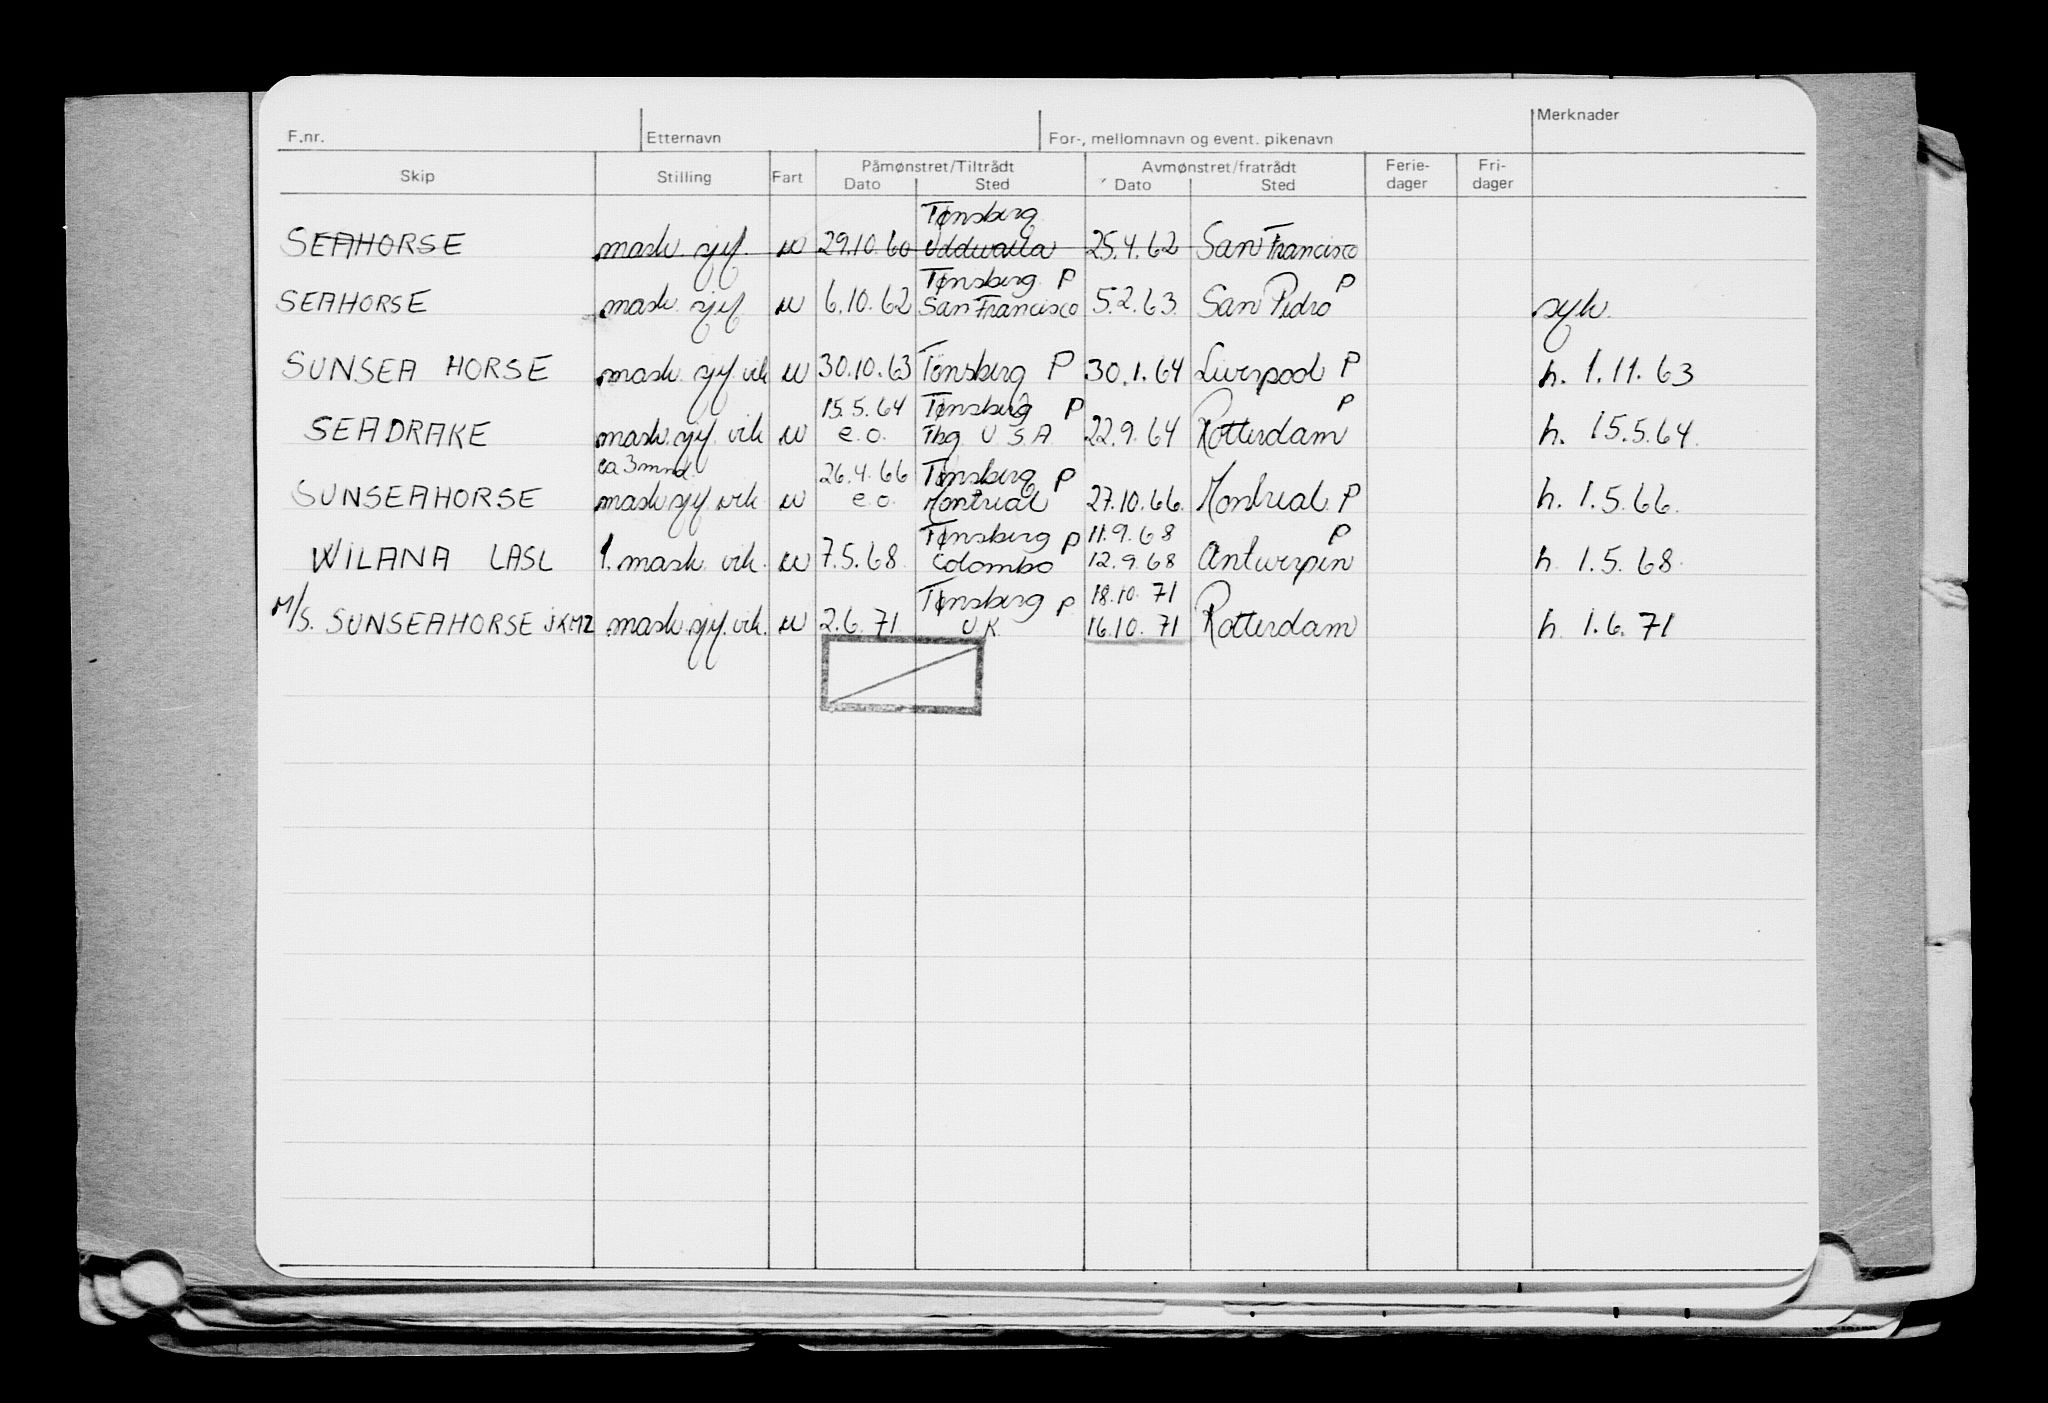 F.nr. Etternavn For-, mellomnavn og event. pikenavn Merknader
Skip Stilling Fart Påmønstret/Tiltrådt Avmønstret/fratrådt Ferie- Fri-
Dato Sted Dato Sted dager dager
Tønsberg
SEAHORSE mask. sjef. u 29.10.60 Uddevalla 25.4.62 San Francisco
Tønsberg P P
SEAHORSE mask. sjef u 6.10.62 San Francisco 5.2.63. San Pedro syk.
SUNSEA HORSE mask. sjef. vik u 30.10.63 Tønsberg P 30.1.64 Liverpool P h. 1.11.63
15.5.64 Tønsberg P P
SEADRAKE mask. sjef. vik u e.o. Tbg U S A 22.9.64 Rotterdam h. 15.5.64.
ca 3 mnd. 26.4.66 Tønsberg P
SUNSEAHORSE mask sjef vik. u e.o. Montreal 27.10.66. Montreal. P h. 1.5.66.
Tønsberg P 11.9.68 P
WILANA LASL 1. mask. vik. u 7.5.68. Colombo 12.9.68 Antwerpen h. 1.5.68.
Tønsberg P 18.10.71
M/S. SUNSEAHORSE JKMZ mask. sjef. vik. u 2.6.71 U K 16.10.71 Rotterdam h. 1.6.71